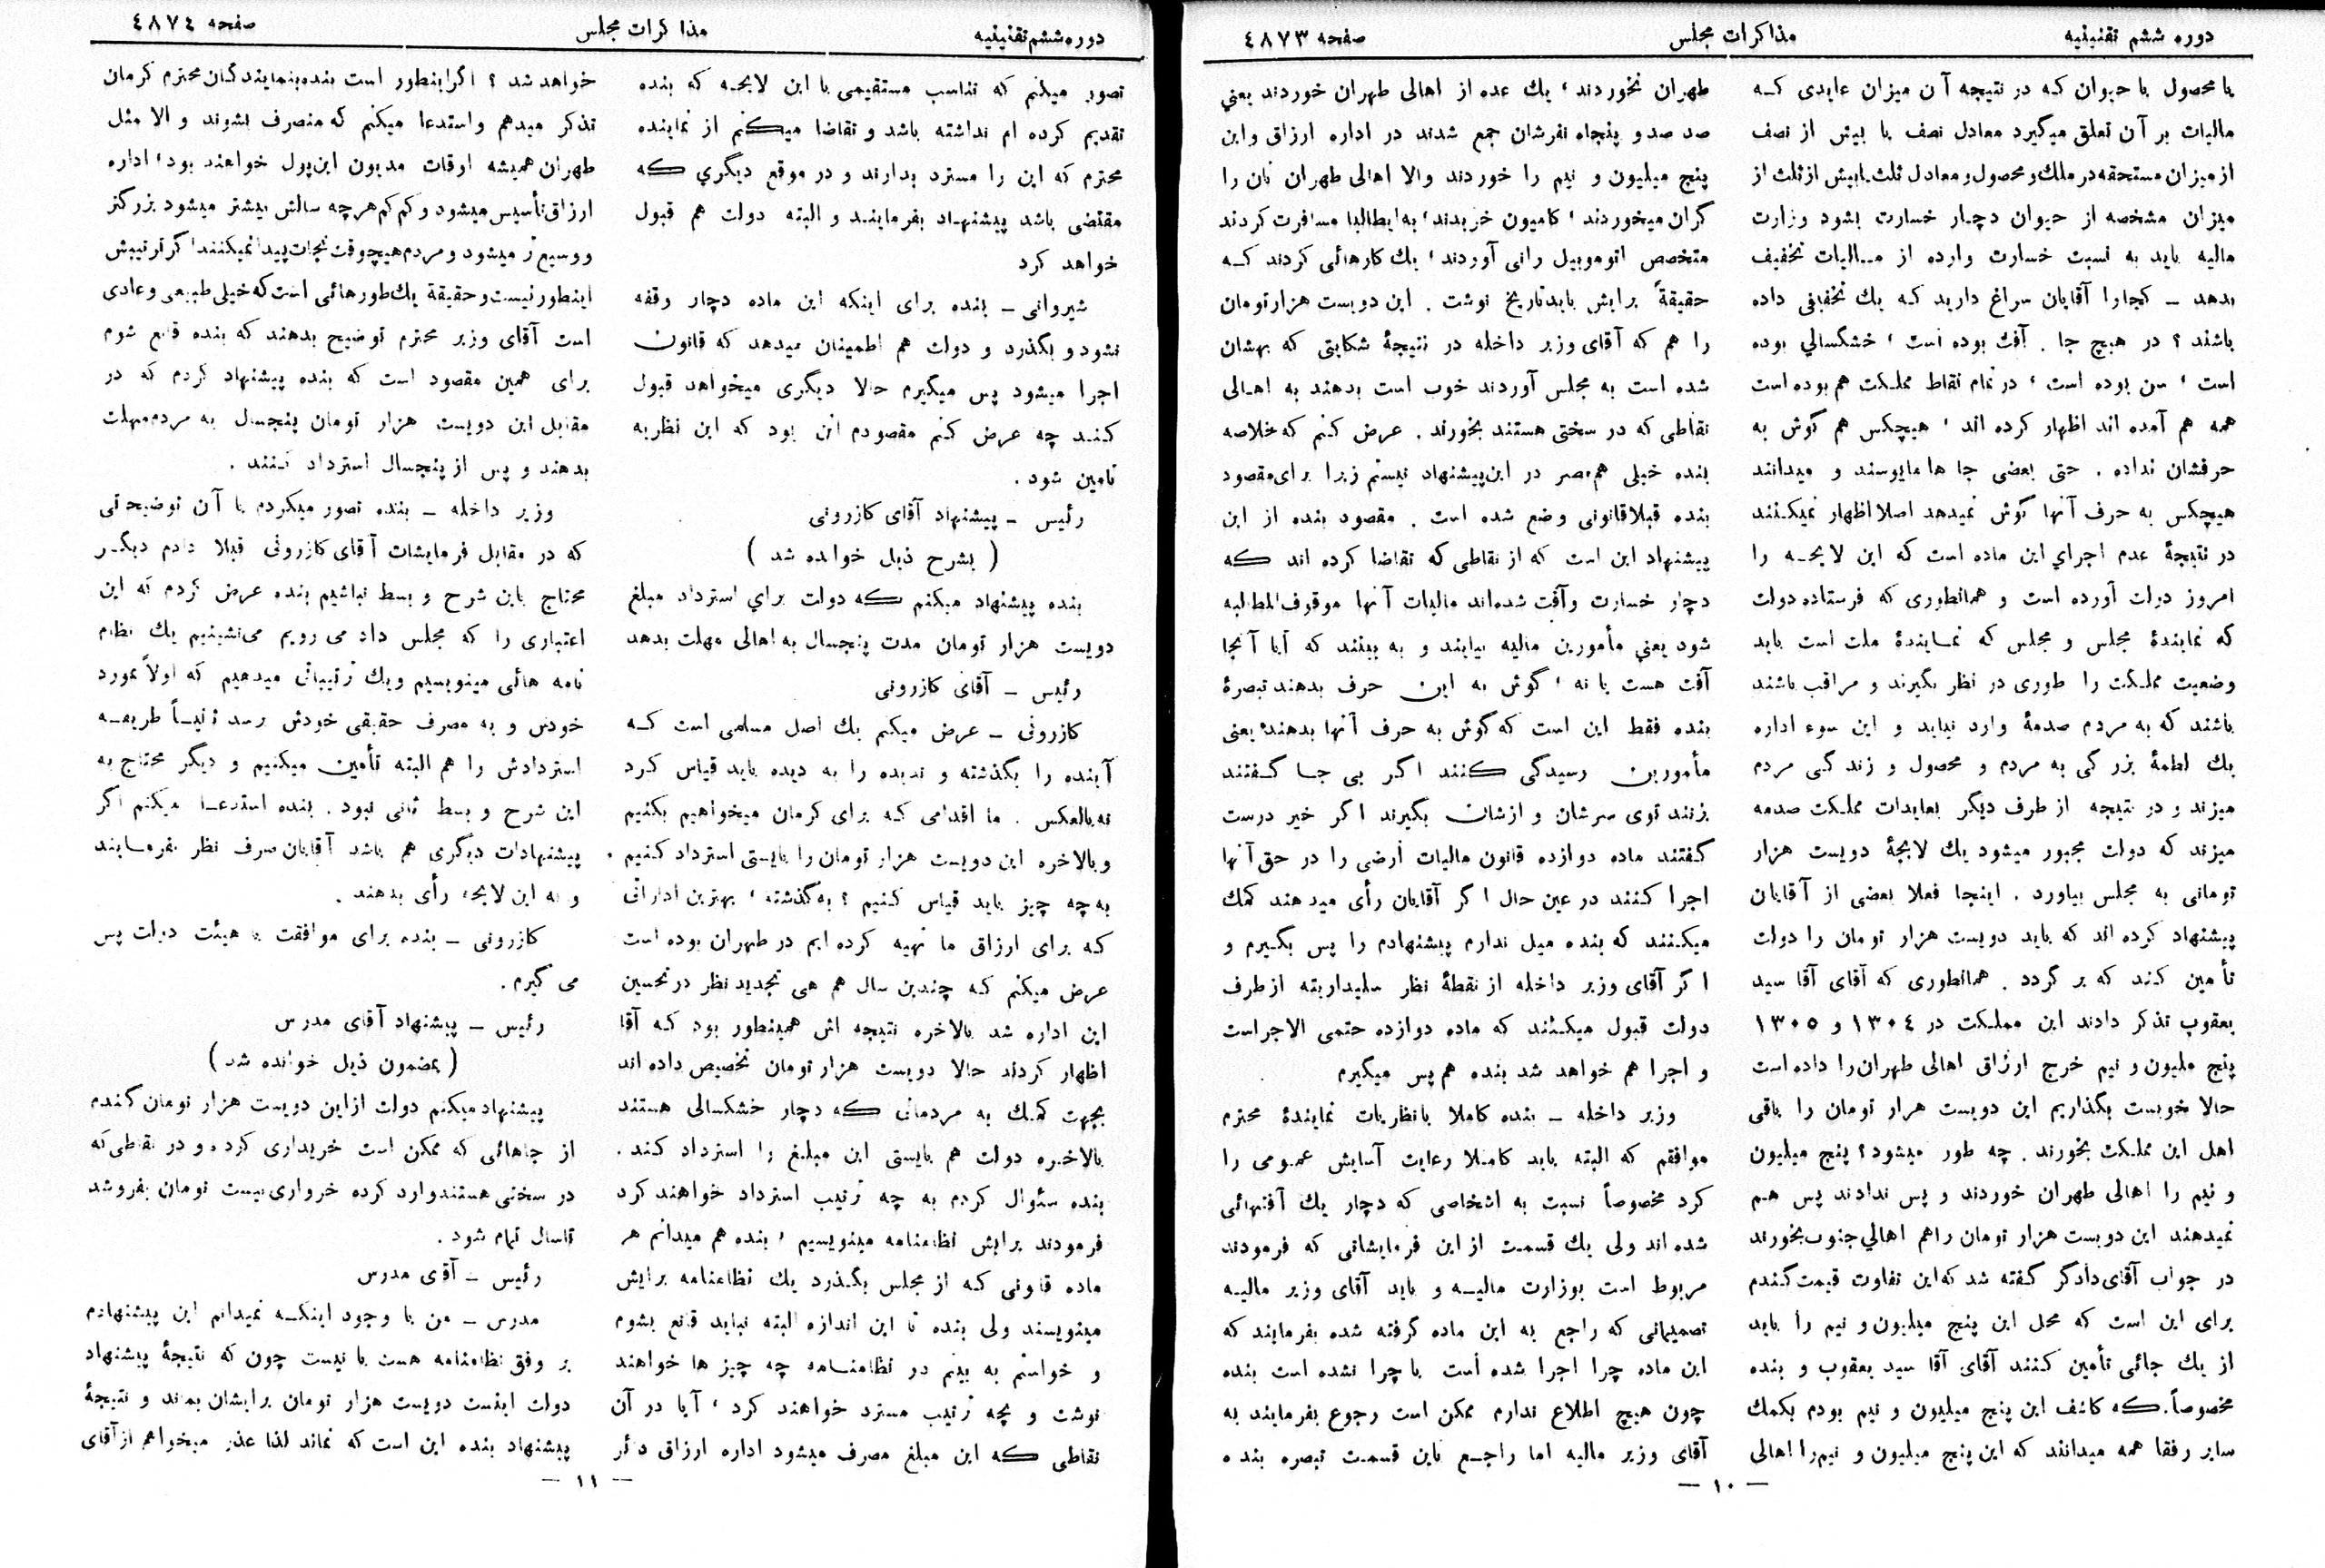 دوره ششم تقنینیه
مذاکرات مجلس
صفحه ٤٨٧٣
یا محصول یا حیوان که در نتیجه آن میزان عایدی که
مالیات بر آن تعلق میگیرد معادل نصف یا بیش از نصف
از میزان مستحقه در ملك و محصول و معادل ثلث یا بیش از ثلث از
میزان مشخصه از حیوان دچار خسارت بشود وزارت
مالیه باید به نسبت خسارت وارده از مالیات تخفیف
بدهد ـ کجارا آقایان سراغ دارید که یك تخفیفی داده
باشند ؟ در هیچ جا . آفت بوده است ، خشگسالی بوده
است ، سن بوده است ، در تمام نقاط مملکت هم بوده است
همه هم آمده اند اظهار کرده اند ، هیچکس هم گوش به
حرفشان نداده . حتی بعضی جا ها مایوسند و میدانند
هیچکس به حرف آنها گوش نمیدهد اصلا اظهار نمیکنند
در نتیجهٔ عدم اجرای این ماده است که این لایحه را
امروز دولت آورده است و همانطوری که فرستاده دولت
که نمایندهٔ مجلس و مجلس که نمایندهٔ ملت است باید
وضعیت مملکت را طوری در نظر بگیرند و مراقب باشند
باشند که به مردم صدمهٔ وارد نیاید و این سوء اداره
یك لطمهٔ بزرگی به مردم و محصول و زندگی مردم
میزند و در نتیجه از طرف دیگر بعایدات مملکت صدمه
میزند که دولت مجبور میشود یك لایحهٔ دویست هزار
تومانی به مجلس بیاورد . اینجا فعلا بعضی از آقایان
پیشنهاد کرده اند که باید دویست هزار تومان را دولت
تأمین کند که بر گردد . همانطوری که آقای آقا سید
یعقوب تذکر دادند این مملکت در ١٣٠٤ و ١٣٠٥
پنج ملیون و نیم خرج ارزاق اهالی طهران را داده است
حالا خوبست بگذاریم این دویست هزار تومان را باقی
اهل این مملکت بخورند . چه طور میشود ؟ پنج میلیون
و نیم را اهالی طهران خوردند و پس ندادند پس هم
نمیدهند این دویست هزار تومان راهم اهالی جنوب بخورند
در جواب آقای دادگر گفته شد که این تفاوت قیمت گندم
برای این است که محل این پنج میلیون و نیم را باید
از یك جائی تأمین کنند آقای آقا سید یعقوب و بنده
مخصوصاً . که کاشف این پنج میلیون و نیم بودم بکمك
سایر رفقا همه میدانند که این پنج میلیون و نیم را اهالی
طهران نخوردند ، یك عده از اهالی طهران خوردند یعنی
صد صد و پنجاه نفرشان جمع شدند در اداره ارزاق و این
پنج میلیون و نیم را خوردند والا اهالی طهران نان را
گران میخوردند ، کامیون خریدند ، به ایطالیا مسافرت کردند
متخصص اتوموبیل رانی آوردند ، یك کارهائی کردند که
حقیقةً برایش باید تاریخ نوشت . این دویست هزار تومان
را هم که آقای وزیر داخله در نتیجهٔ شکایتی که بهشان
شده است به مجلس آوردند خوب است بدهند به اهالی
نقاطی که در سختی هستند بخورند . عرض کنم که خلاصه
بنده خیلی هم مصر در این پیشنهاد نیستم زیرا برای مقصود
بنده قبلا قانونی وضع شده است . مقصود بنده از این
پیشنهاد این است که از نقاطی که تقاضا کرده اند که
دچار خسارت و آفت شده‌اند مالیات آنها موقوف المطالبه
شود یعنی مأمورین مالیه بیایند و به بینند که آیا آنجا
آفت هست یا نه ، گوش به این حرف بدهند تبصرهٔ
بنده فقط این است که گوش به حرف آنها بدهند یعنی
مأمورین رسیدگی کنند اگر بی جا گفتند
بزنند توی سرشان و ازشان بگیرند اگر خیر درست
گفتند ماده دوازده قانون مالیات ارضی را در حق آنها
اجرا کنند در عین حال اگر آقایان رأی میدهند کمك
میکنند که بنده میل ندارم پیشنهادم را پس بگیرم و
اگر آقای وزیر داخله از نقطهٔ نظر سلیداریته از طرف
دولت قبول میکنند که ماده دوازده حتمی الاجراست
و اجرا هم خواهد شد بنده هم پس میگیرم
وزیر داخله ـ بنده کاملا با نظریات نمایندهٔ محترم
موافقم که البته باید کاملا رعایت آسایش عمومی را
کرد مخصوصاً نسبت به اشخاصی که دچار یك آفتهائی
شده اند ولی یك قسمت از این فرمایشاتی که فرمودند
مربوط است بوزارت مالیه و باید آقای وزیر مالیه
تصمیماتی که راجع به این ماده گرفته شده بفرمایند که
این ماده چرا اجرا شده است یا چرا نشده است بنده
چون هیچ اطلاع ندارم ممکن است رجوع بفرمایند به
آقای وزیر مالیه اما راجع باین قسمت تبصره بنده
ـ ١٠ ـ
دوره ششم تقنینیه
مذاکرات مجلس
صفحه ٤٨٧٤
تصور میکنم که تناسب مستقیمی با این لایحه که بنده
تقدیم کرده ام نداشته باشد و تقاضا میکنم از نماینده
محترم که این را مسترد بدارند و در موقع دیگری که
مقتضی باشد پیشنهاد بفرمایند و البته دولت هم قبول
خواهد کرد
شیروانی ـ بنده برای اینکه این ماده دچار وقفه
نشود و بگذرد و دولت هم اطمینان میدهد که قانون
اجرا میشود پس میگیرم حالا دیگری میخواهد قبول
کند چه عرض کنم مقصودم این بود که این نظریه
تامین شود .
رئیس ـ پیشنهاد آقای کازرونی
( بشرح ذیل خوانده شد )
بنده پیشنهاد میکنم که دولت برای استرداد مبلغ
دویست هزار تومان مدت پنجسال به اهالی مهلت بدهد
رئیس ـ آقای کازرونی
کازرونی ـ عرض میکنم یك اصل مسلمی است که
آینده را بگذشته و ندیده را به دیده باید قیاس کرد
نه بالعکس . ما اقدامی که برای کرمان میخواهیم بکنیم
و بالاخره این دویست هزار تومان را بایستی استرداد کنیم .
به چه چیز باید قیاس کنیم ؟ به گذشته ، بهترین اداراتی
که برای ارزاق ما تهیه کرده ایم در طهران بوده است
عرض میکنم که چندین سال هم هی تجدید نظر در تحسین
این اداره شد بالاخره نتیجه اش همینطور بود که آقا
اظهار کردند حالا دویست هزار تومان تخصیص داده اند
بجهت کمك به مردمانی که دچار خشکسالی هستند
بالاخره دولت هم بایستی این مبلغ را استرداد کند .
بنده سئوال کردم به چه ترتیب استرداد خواهند کرد
فرمودند برایش نظامنامه مینویسیم ، بنده هم میدانم هر
ماده قانونی که از مجلس بگذرد یك نظامنامه برایش
مینویسند ولی بنده تا این اندازه البته نباید قانع بشوم
و خواستم به بینم در نظامنامه چه چیز ها خواهند
نوشت و بچه ترتیب مسترد خواهند کرد ، آیا در آن
نقاطی که این مبلغ مصرف میشود اداره ارزاق دائر
خواهد شد ؟ اگر اینطور است بنده بنمایندگان محترم کرمان
تذکر میدهم و استدعا میکنم که منصرف بشوند و الا مثل
طهران همیشه اوقات مدیون این پول خواهند بود ، اداره
ارزاق تأسیس میشود و کم کم هر چه سالش بیشتر میشود بزرگتر
و وسیع تر میشود و مردم هیچوقت نجات پیدا نمیکنند اگر ترتیبش
اینطور نیست و حقیقة یك طور هائی است که خیلی طبیعی و عادی
است آقای وزیر محترم توضیح بدهند که بنده قانع شوم
برای همین مقصود است که بنده پیشنهاد کردم که در
مقابل این دویست هزار تومان پنجسال به مردم مهلت
بدهند و پس از پنجسال استرداد کنند .
وزیر داخله ـ بنده تصور میکردم با آن توضیحاتی
که در مقابل فرمایشات آقای کازرونی قبلا دادم دیگر
محتاج باین شرح و بسط نباشیم بنده عرض کردم که این
اعتباری را که مجلس داد می رویم می‌نشینیم یك نظام
نامه هائی مینویسیم و یك ترتیباتی میدهیم که اولاً بمورد
خودش و به مصرف حقیقی خودش برسد ثانیاً طریقه
استردادش را هم البته تأمین میکنیم و دیگر محتاج به
این شرح و بسط ثانی نبود . بنده استدعا میکنم اگر
پیشنهادات دیگری هم باشد آقایان صرف نظر بفرمایند
و به این لایحه رأی بدهند .
کازرونی ـ بنده برای موافقت با هیئت دولت پس
می گیرم .
رئیس ـ پیشنهاد آقای مدرس
( بمضمون ذیل خوانده شد )
پیشنهاد میکنم دولت از این دویست هزار تومان گندم
از جاهائی که ممکن است خریداری کرده و در نقاطی که
در سختی هستند وارد کرده خرواری بیست تومان بفروشد
تا سال تمام شود .
رئیس ـ آقای مدرس
مدرس ـ من با وجود اینکه نمیدانم این پیشنهادم
بر وفق نظامنامه هست یا نیست چون که نتیجهٔ پیشنهاد
دولت اینست دویست هزار تومان برایشان بماند و نتیجهٔ
پیشنهاد بنده این است که نماند لذا عذر میخواهم از آقای
ـ ١١ ـ